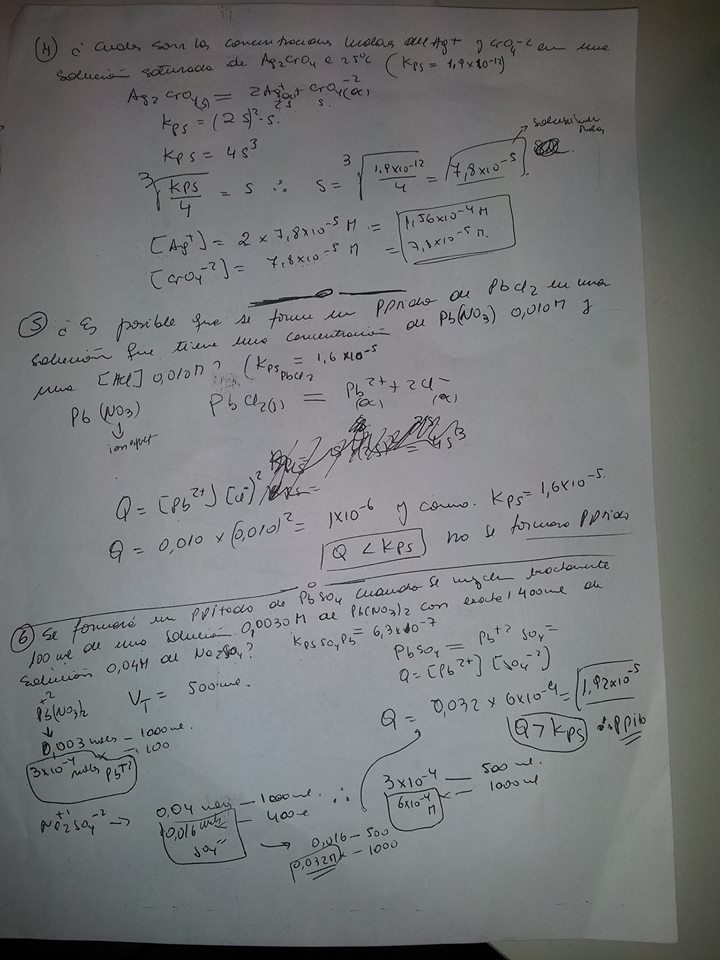 (4) ¿ Cuales son las concentraciones molares del Ag+ y CrO4-2 en una
solución saturada de Ag2CrO4 a 25°C (Kps = 1,9x10-12)
Ag2CrO4(s) = 2Ag+ + CrO4-2 (ac)
2s s.
Kps = (2s)2·s.
Kps = 4s3
3√Kps/4 = s ∴ s = 3√1,9x10-12/4 = 7,8x10-5 → solubilidad molar
[Ag+] = 2 x 7,8x10-5 M = 1,56x10-4 M
[CrO4-2] = 7,8x10-5 M = 7,8x10-5 M.
(5) ¿ Es posible que se forme un PPitado de PbCl2 en una
solución que tiene una concentración de Pb(NO3) 0,010M y
una [HCl] 0,010M ? (Kps PbCl2 = 1,6x10-5
Pb(NO3) PbCl2(s) = Pb2+ (ac) + 2Cl- (ac)
↓
4s3
Q = [Pb2+] [Cl-]2
Q = 0,010 x (0,010)2 = 1x10-6 y como Kps = 1,6x10-5.
Q < Kps No se formara PPitado
(6) Se formará un PPitado de PbSO4 cuando se mezclen exactamente
100 ml de una solución 0,0030 M de Pb(NO3)2 con 400 ml de
solución 0,04M de Na2SO4? Kps SO4Pb = 6,3x10-7
PbSO4 = Pb+2 SO4=
Q = [Pb2+] [SO4-2]
+2
Pb(NO3)2 VT = 500 ml.
↓
0,003 moles — 1000 ml
x — 100
3x10-4 moles Pb+2
Q = 0,032 x 6x10-4 = 1,92x10-5
Q > Kps PPito
Na2+1SO4-2 → 0,04 moles — 1000 ml. ∴ 3x10-4 — 500 ml.
0,016 moles — 400 6x10-4 M — 1000 ml
SO4= → 0,016 — 500
0,032M x — 1000